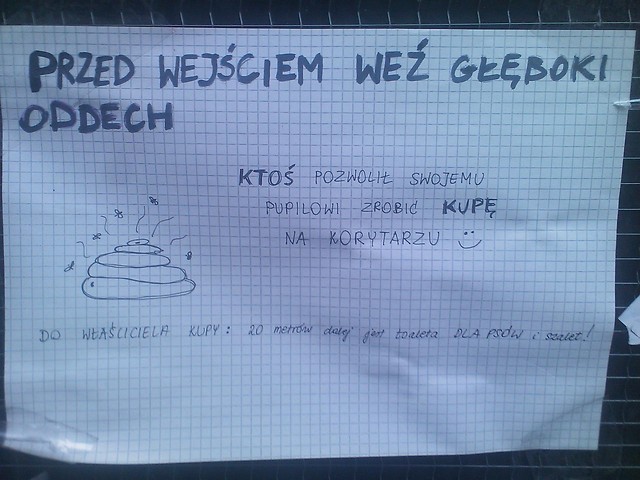 PRZED WEJŚCIEM WEŹ GŁĘBOKI
ODDECH
KTOŚ POZWOLIŁ SWOJEMU
PUPILOWI ZROBIĆ KUPĘ
NA KORYTARZU
DO WŁAŚCICIELA KUPY: 20 metrów dalej jest toaleta DLA PSÓW i szalet!